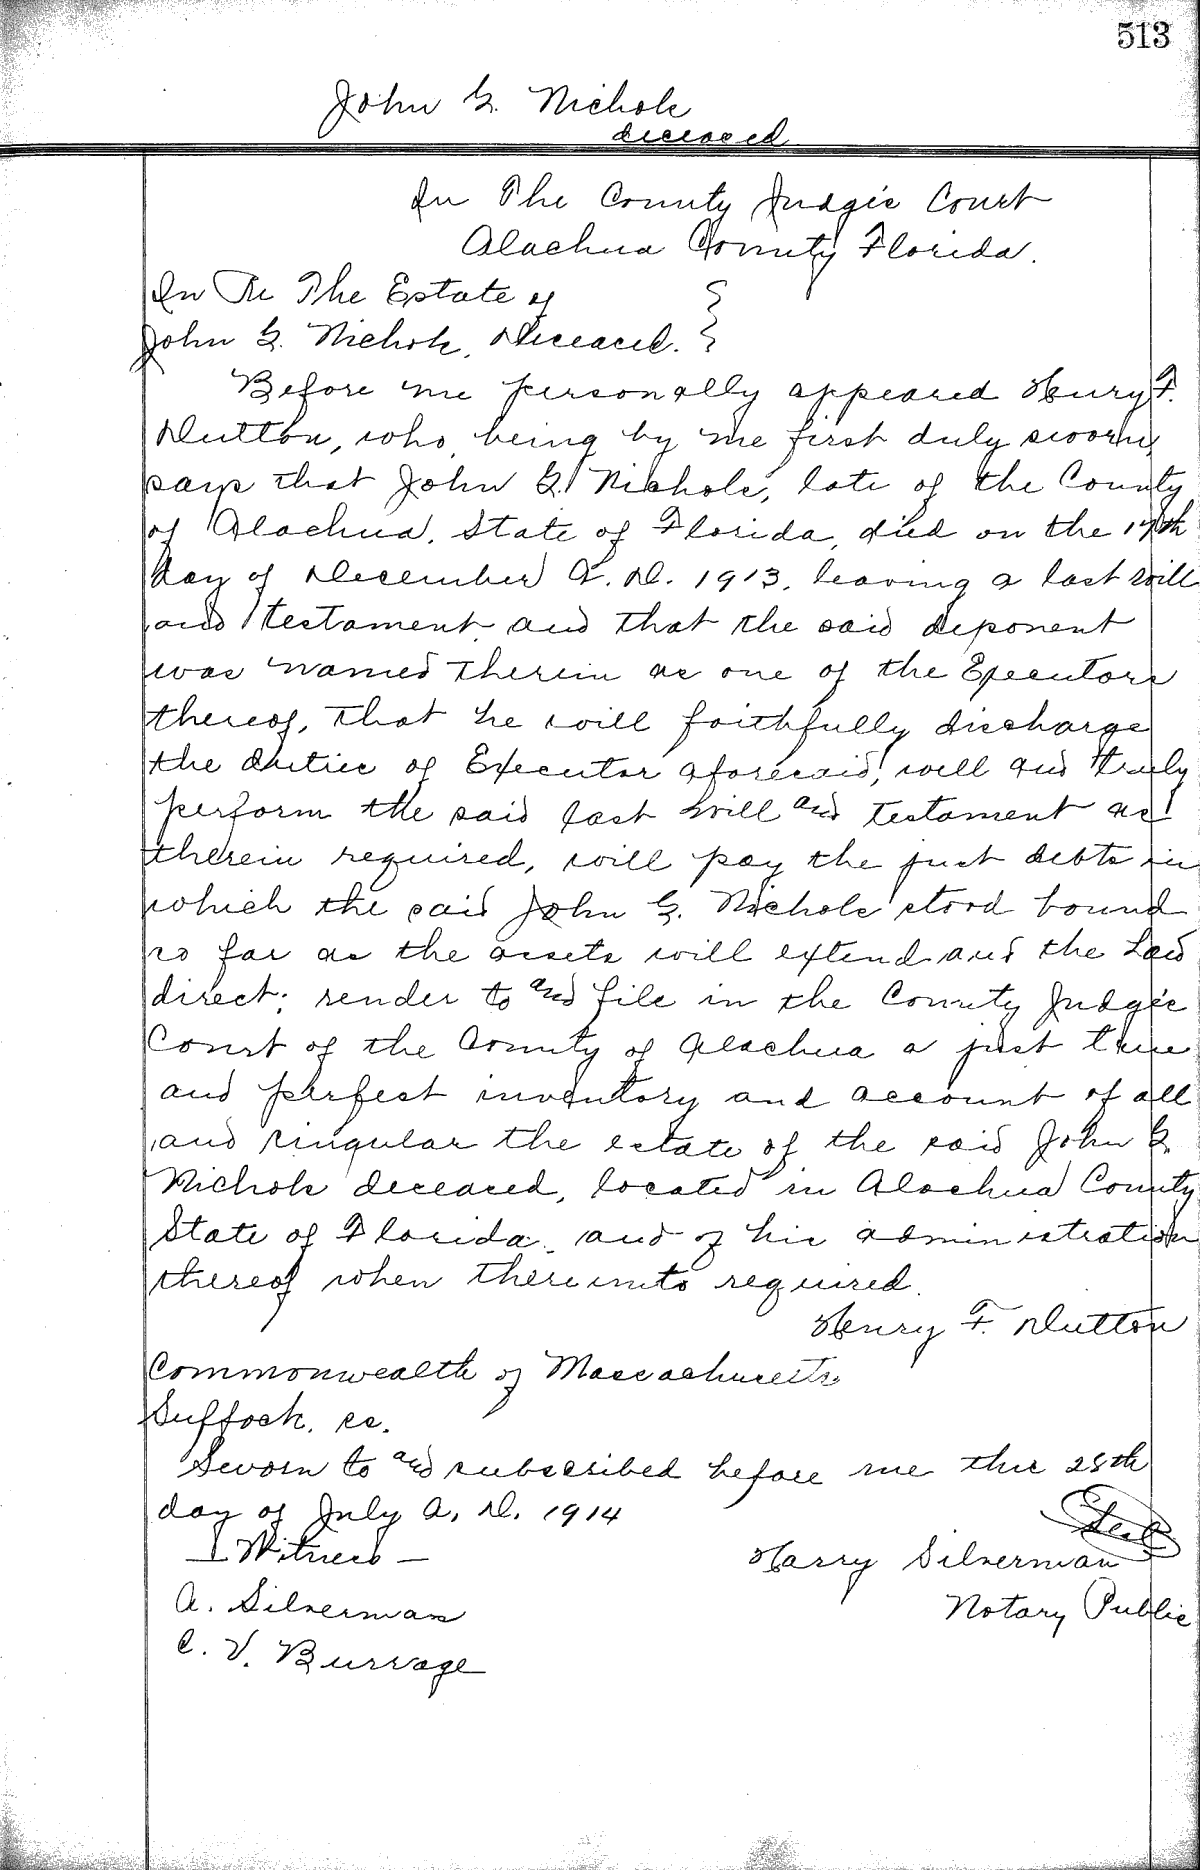 513
John G. Nichols
deceased
In The County Judge's Court
Alachua County Florida.
In Re The Estate of
John G. Nichols, Deceased.
Before me personally appeared Henry F.
Dutton, who, being by me first duly sworn,
says that John G. Nichols, late of the County
of Alachua, State of Florida, died on the 17th
day of December A. D. 1913, leaving a last will
and testament and that the said deponent
was named therein as one of the Executors
thereof, that he will faithfully discharge
the duties of Executor aforesaid, well and truly
perform the said last will and testament as
therein required, will pay the just debts in
which the said John G. Nichols stood bound
so far as the assets will extend and the Law
direct; render to and file in the County Judge's
Court of the County of Alachua a just true
and perfect inventory and account of all
and singular the estate of the said John G.
Nichols deceased, located in Alachua County
State of Florida, and of his administration
thereof when thereunto required.
Henry F. Dutton
Commonwealth of Massachusetts
Suffock. ss.
Sworn to and subscribed before me this 28th
day of July A. D. 1914
Seal
Witness
Harry Silverman
A. Silverman
Notary Public
C. V. Burrage